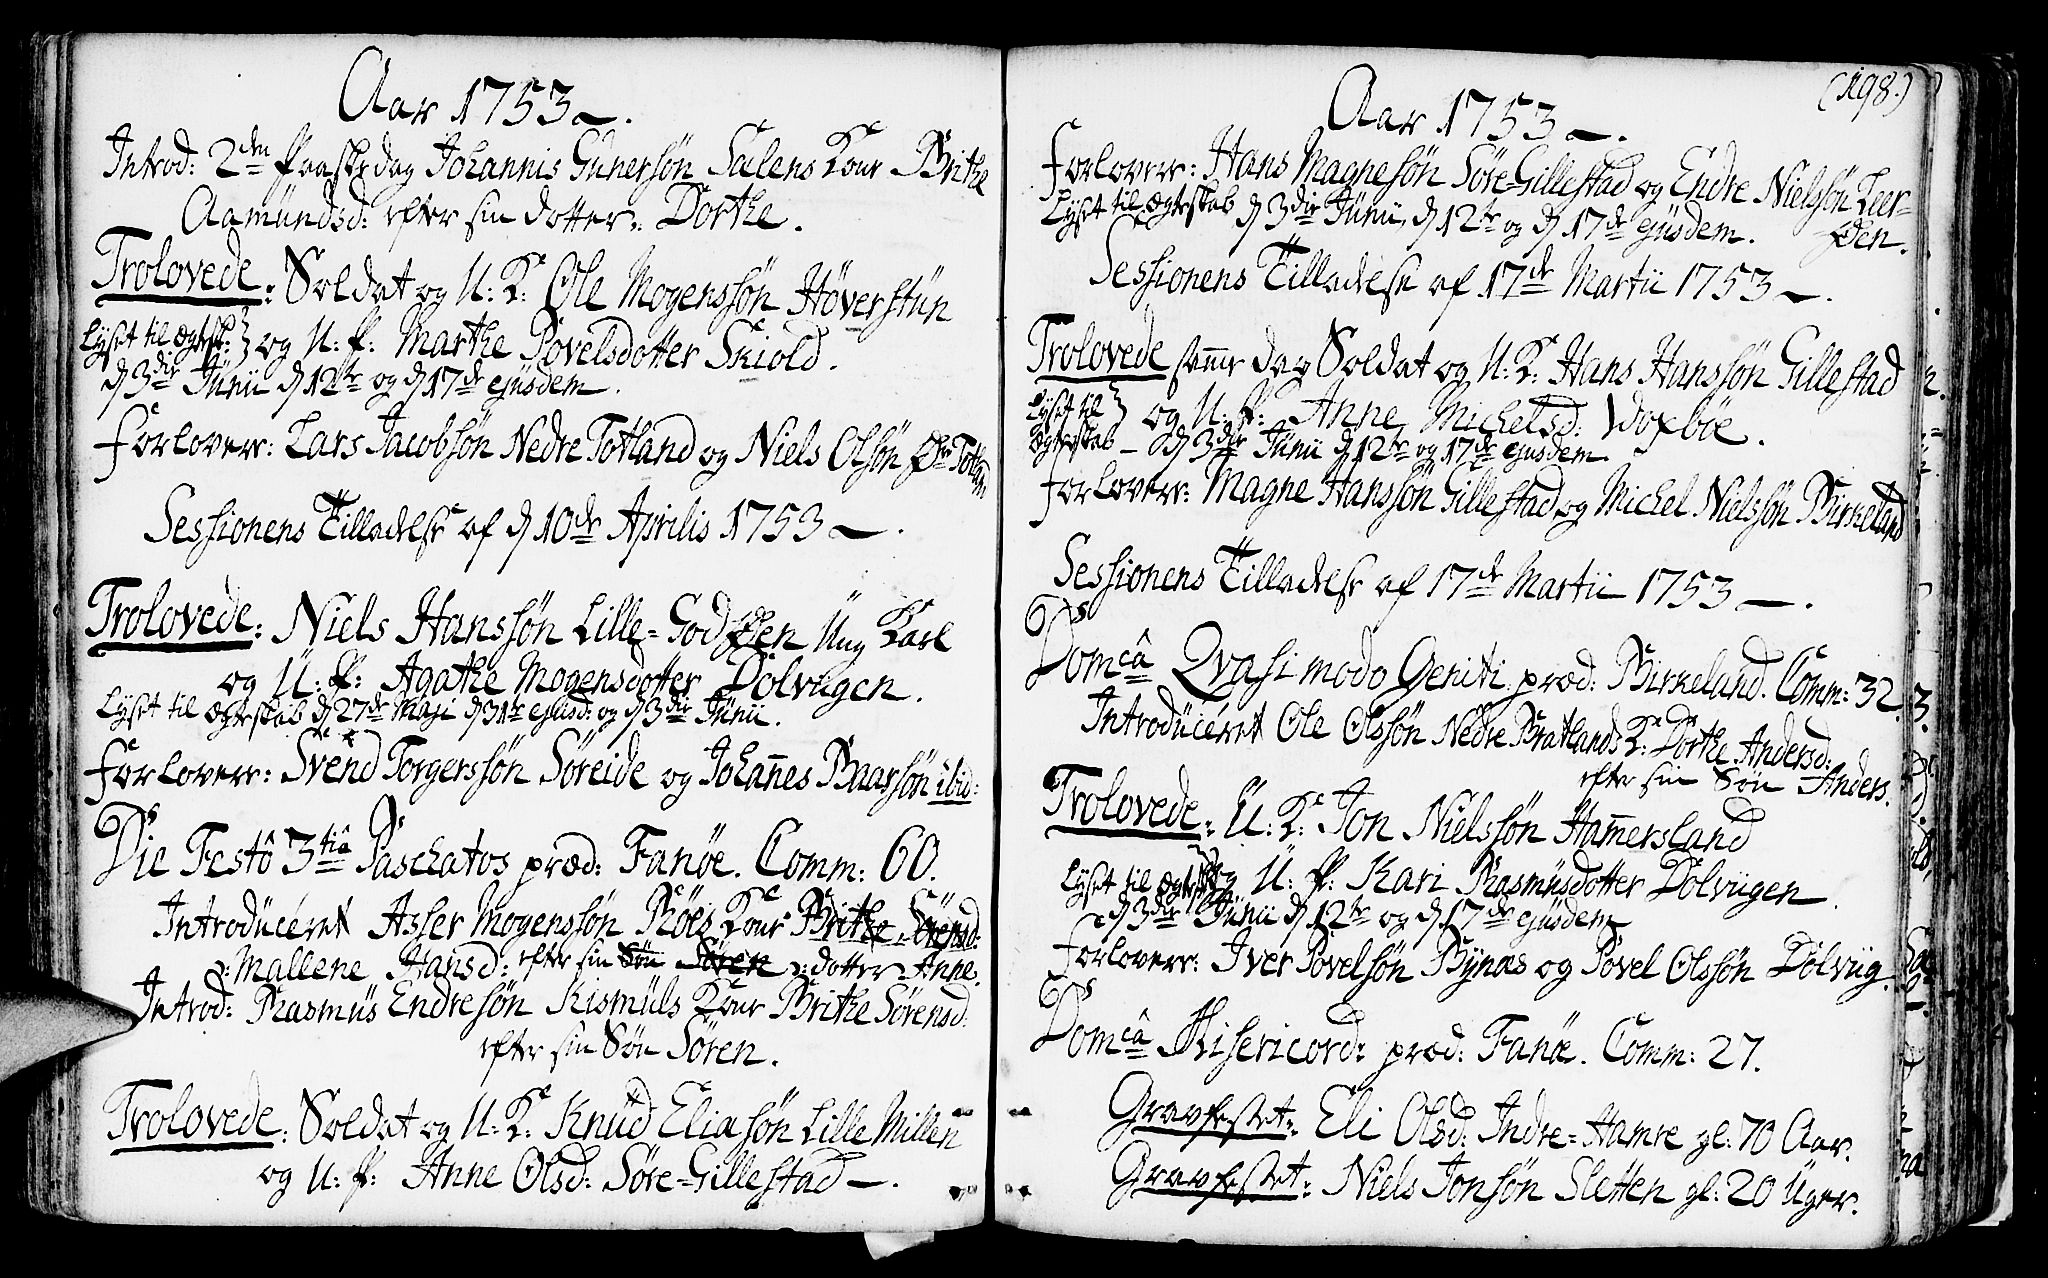 Aar 1753 —.
Introd: 2den Paaskedag Johannis Gunersøn Sælens Kone Brithe
Aamundsd: efter sin dotter: Dorthe.
Trolovede: Soldat og U: K: Ole Mogenssøn Høverstun
Lyset til Ægtesk: } og U: P: Marthe Povelsdotter Skiold.
d 3die Junii d 12te og d 17de ejusdem.
Forlovere: Lars Jacobsøn Nedre Totland og Niels Olsøn Øvre Totland
Sessionens Tilladelse af d 10de Aprilis 1753 —.
Trolovede: Niels Hanssøn Lille-Godøen Ung Karl
og U: P: Agathe Mogensdotter Dolvigen.
Lyset til Ægteskab d 27de Maji d 31te ejusd: og d 3die Junii.
Forlovere: Svend Torgerssøn Søreide og Johannes Baarsøn ibid:
Die Festô 3tiâ Paschatos præd: Fanøe. Comm: 60.
Introduceret Asser Mogenssøn Røes Kone Brithe Sørensd:
: Mallene Hansd: efter sin Søn Søren : dotter Anne.
Introd: Rasmus Endresøn Kismuls Kone Brithe Sørensd:
efter sin Søn Søren.
Trolovede: Soldat og U: K: Knud Eliasøn Lille Millen
og U: P: Anne Olsd: Søre-Gillestad —.
(198.)
Aar 1753 —.
Forlovere: Hans Magnesøn Søre-Gillestad og Endre Nielssøn Leer-
Lyset til Ægteskab d 3die Junii, d 12te og d 17de ejusdem. øen.
Sessionens Tilladelse af 17de Martii 1753 —.
Trolovede samme dag Soldat og U: K: Hans Hanssøn Gillestad
Lyset til } og U: P: Anne Michelsd: Woxbøe.
Ægteskab — d 3die Junii d 12te og 17de ejusdem
Forlovere: Magne Hanssøn Gillestad og Michel Nielssøn Birkeland
Sessionens Tilladelse af 17de Martii 1753 —.
Domcâ Qvasi modo Geniti præd: Birkeland. Comm: 32.
Introduceret Ole Olssøn Nedre Bratlands K: Dorthe Andersd:
efter sin Søn Anders.
Trolovede: U: K: Jon Nielssøn Hamersland
Lyset til Ægtesk: og U: P: Kari Rasmusdotter Dolvigen.
d 3die Junii d 12te og d 17de ejusdem
Forlovere: Iver Povelsøn Bynæs og Povel Olssøn Dolvig.
Domcâ Misericord: præd: Fanöe. Comm: 27.
Gravfestet: Eli Olsd: Indre-Hamre gl: 70 Aar.
Gravfestet: Niels Jonsøn Sletten gl: 20 Uger.